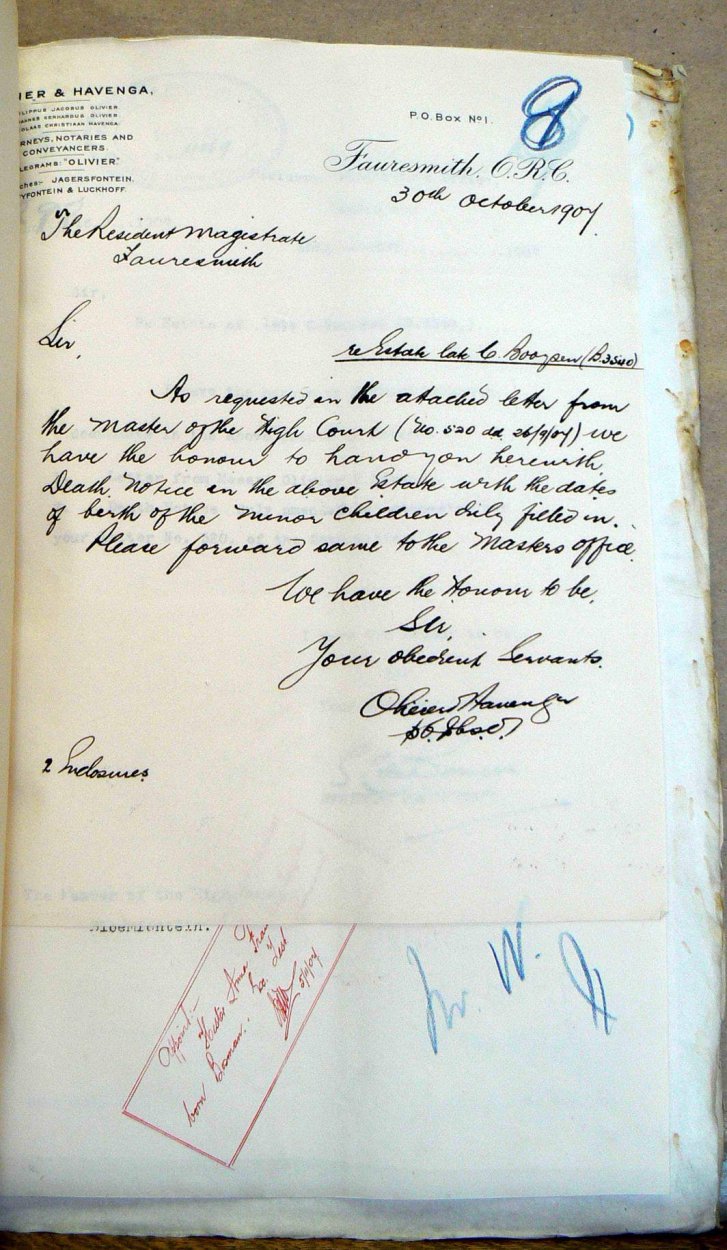 IER & HAVENGA,
ILIPPUS JACOBUS OLIVIER
ANNES GERHARDUS OLIVIER
OLAAS CHRISTIAAN HAVENGA.
RNEYS, NOTARIES AND
CONVEYANCERS.
EGRAMS: "OLIVIER"
ches:- JAGERSFONTEIN,
YFONTEIN & LUCKHOFF.
P.O. Box No 1.
8
Fauresmith, O.R.C.
30th October 1907.
The Resident Magistrate
Fauresmith
Sir,
re Estate late C. Booysen (B3540)
As requested in the attached letter from
the Master of the High Court (No. 520 dd. 26/9/07) we
have the honour to hand you herewith,
Death Notice in the above Estate with the dates
of birth of the minor children duly filled in.
Please forward same to the Masters office.
We have the Honour to be,
Sir,
Your obedient Servants.
Olivier & Havenga
2 Enclosures
Bloemfontein.
Appoint:-
Hester Anna
born Bosman..